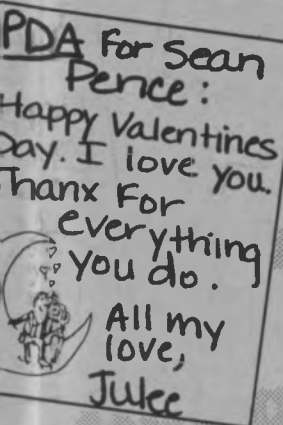 PDA For Sean
Pence:
Happy Valentines
Day. I love you.
Thanx For
everything
you do.
All my
love,
Julee